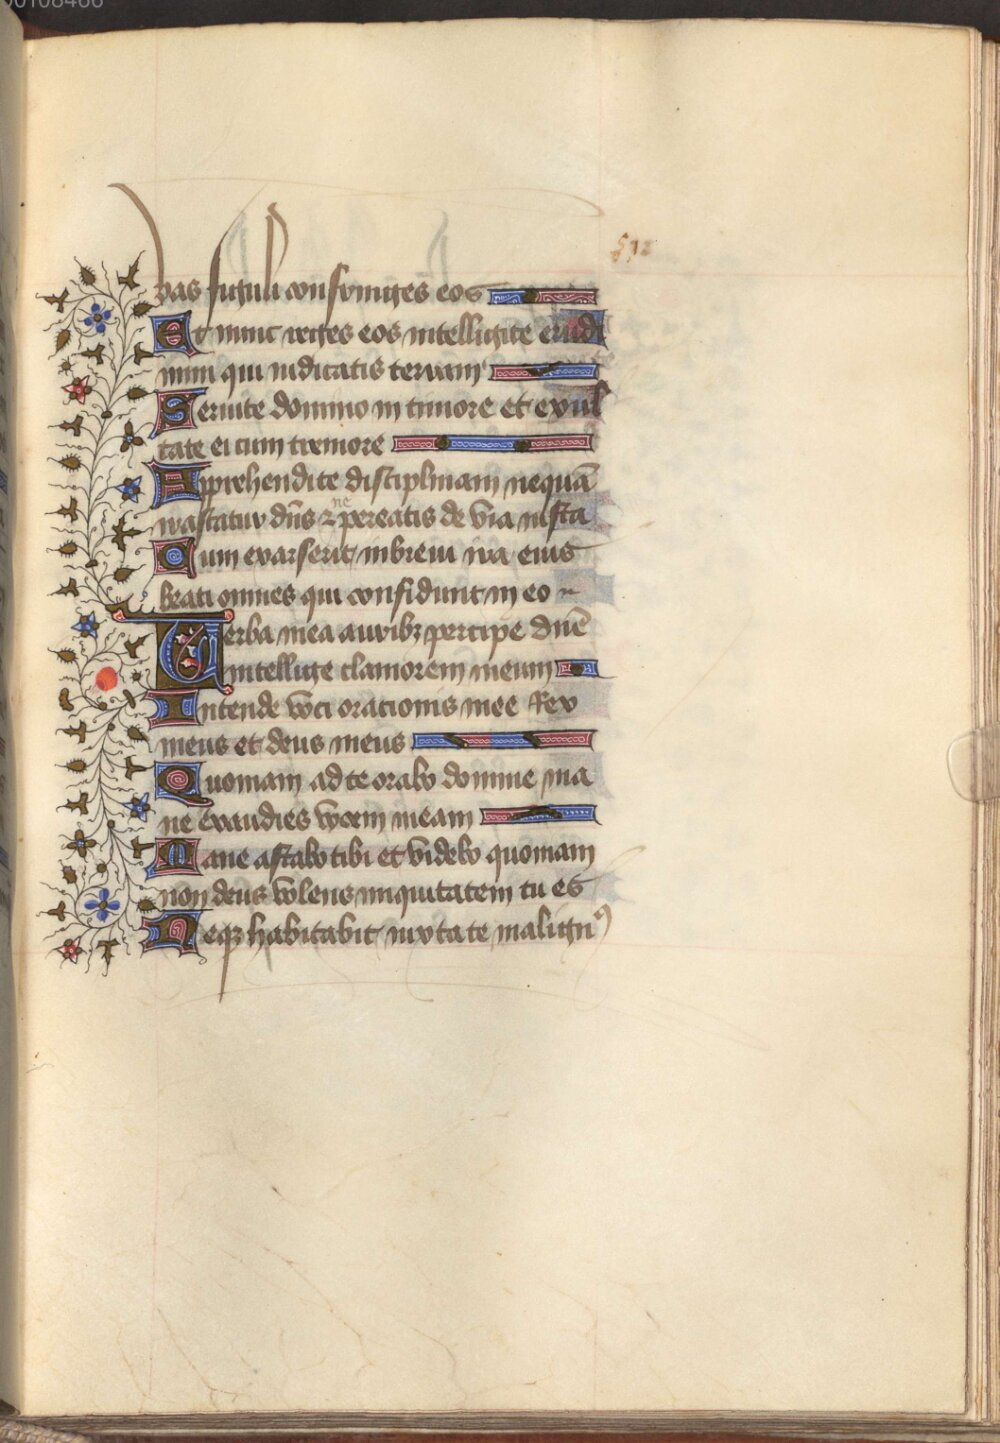 vas figuli confringes eos
Et nunc reges eos intelligite erudi
mini qui iudicatis terram
Seruite domino in timore et exul
tate ei cum tremore
Apprehendite disciplinam nequā
irascatur dn̄s ⁊ ne pereatis de via iusta
Cum exarserit in breui ira eius
beati omnes qui confidunt in eo
Verba mea auribꝫ percipe dn̄e
intellige clamorem meum
Intende voci orationis mee Rex
meus et deus meus
Quoniam ad te orabo domine ma
ne exaudies vocem meam
Mane astabo tibi et videbo quoniam
non deus volens iniquitatem tu es
Neqꝫ habitabit iuxta te malignꝰ